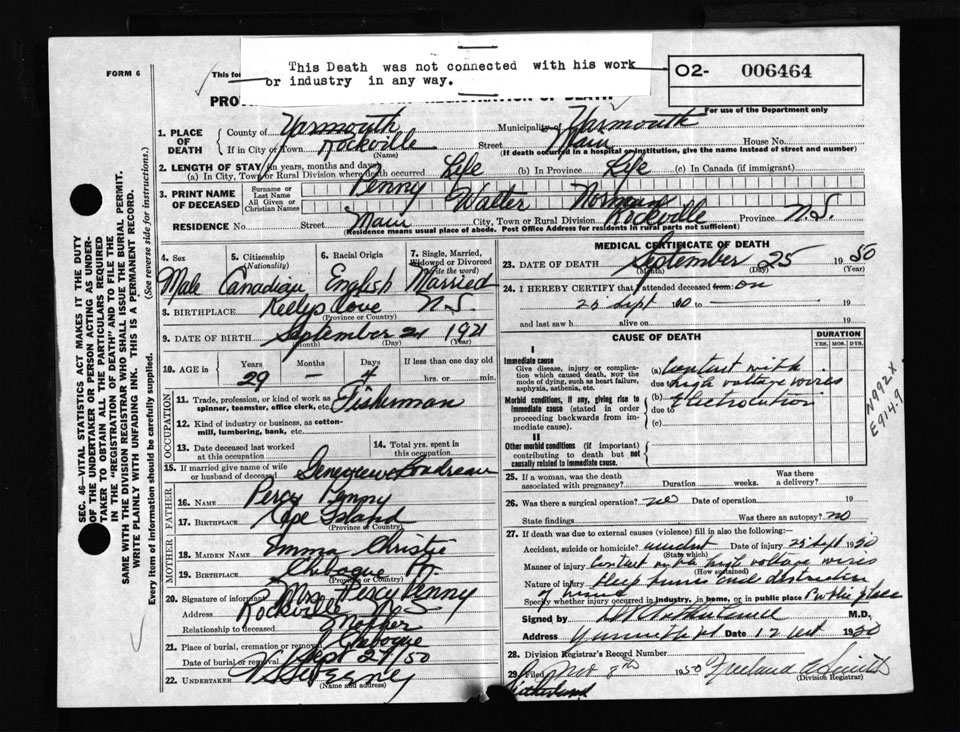 This Death was not connected with his work
or industry in any way.
O2- 006464
For use of the Department only
FORM 6
This for
PRO REGISTRATION OF DEATH
1. PLACE OF DEATH
County of Yarmouth Municipality of Yarmouth
If in City or Town Rockville Street Main House No.
(Name) (If death occurred in a hospital or institution, give the name instead of street and number)
2. LENGTH OF STAY (in years, months and days)
(a) In City, Town or Rural Division where death occurred Life (b) In Province Life (c) In Canada (if immigrant)
3. PRINT NAME OF DECEASED
Surname or Last Name Penny
All Given or Christian Names Walter Norman
RESIDENCE No. Street Main City, Town or Rural Division Rockville Province N.S.
(Residence means usual place of abode. Post Office Address for residents in rural parts not sufficient)
SEC. 46—VITAL STATISTICS ACT MAKES IT THE DUTY
OF THE UNDERTAKER OR PERSON ACTING AS UNDER-
TAKER TO OBTAIN ALL THE PARTICULARS REQUIRED
IN THE "REGISTRATION OF DEATH" AND TO FILE THE
SAME WITH THE DIVISION REGISTRAR WHO SHALL ISSUE THE BURIAL PERMIT.
WRITE PLAINLY WITH UNFADING INK. THIS IS A PERMANENT RECORD.
Every item of information should be carefully supplied. (See reverse side for instructions.)
4. Sex 5. Citizenship (Nationality) 6. Racial Origin 7. Single, Married, Widowed or Divorced (Write the word)
Male Canadian English Married
8. BIRTHPLACE Keelys Cove N.S.
(Province or Country)
9. DATE OF BIRTH September 21 1921
(Month) (Day) (Year)
10. AGE in Years Months Days If less than one day old
29 — 4 hrs. or min.
OCCUPATION
11. Trade, profession, or kind of work as spinner, teamster, office clerk, etc. Fisherman
12. Kind of industry or business, as cotton-mill, lumbering, bank, etc.
13. Date deceased last worked at this occupation
14. Total yrs. spent in this occupation
15. If married give name of wife or husband of deceased Genevieve Boudreau
FATHER
16. NAME Percy Penny
17. BIRTHPLACE Cape Island
(Province or Country)
MOTHER
18. MAIDEN NAME Emma Christie
19. BIRTHPLACE Chebogue Pt.
(Province or Country)
20. Signature of informant Mrs Percy Penny
Address Rockville N.S.
Relationship to deceased Mother
21. Place of burial, cremation or removal Chebogue
Date of burial or removal Sept 27/50
22. UNDERTAKER V.S. Sweeney
(Name and address)
MEDICAL CERTIFICATE OF DEATH
23. DATE OF DEATH September 25 1950
(Month) (Day) (Year)
24. I HEREBY CERTIFY that I attended deceased from: on
25 Sept 50 to 19
and last saw h alive on 19
CAUSE OF DEATH DURATION
YRS. MOS. DYS.
I
Immediate cause
Give disease, injury or complication which caused death, NOT the mode of dying, such as heart failure, asphyxia, asthenia, etc.
(a) Contact with
due to high voltage wires
Morbid conditions, if any, giving rise to immediate cause (stated in order proceeding backwards from immediate cause).
(b) Electrocution
due to
(c)
II
Other morbid conditions (if important) contributing to death but not causally related to immediate cause.
N992X
E914.9
25. If a woman, was the death associated with pregnancy? Duration weeks. Was there a delivery?
26. Was there a surgical operation? no Date of operation 19
State findings Was there an autopsy? no
27. If death was due to external causes (violence) fill in also the following:—
Accident, suicide or homicide? accident Date of injury 25 Sept 1950
(State which)
Manner of injury Contact with high voltage wires
(How sustained)
Nature of injury Deep burns and destruction
of hand
Specify whether injury occurred in industry, in home, or in public place Public place
Signed by M.D.
Address Yarmouth NS Date 12 Oct 1950
28. Division Registrar's Record Number
29. Filed Nov 8th 1950 Freeland A Smith
(Division Registrar)